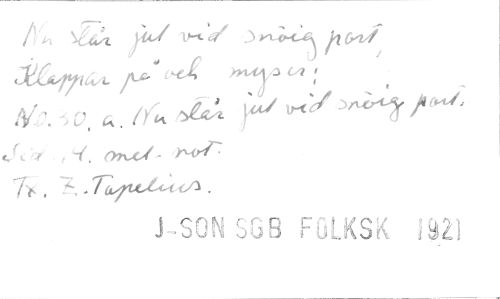 Nu står jul vid snöig port,
Klappar på och myser;
No. 30. a. Nu står jul vid snöig port.
Sid. 4. met. not.
Tx. Z. Tapelius.
J-SON SGB FOLKSK 1921